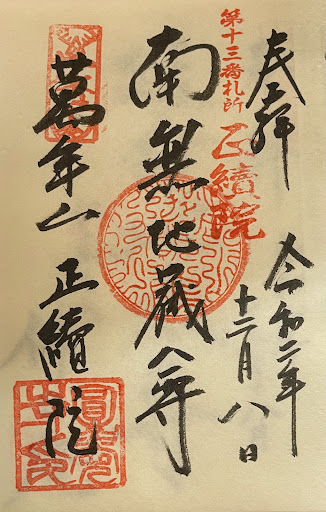 奉拝
令和二年
十二月八日
第十三番札所
正續院
南無地蔵尊
萬年山 正續院